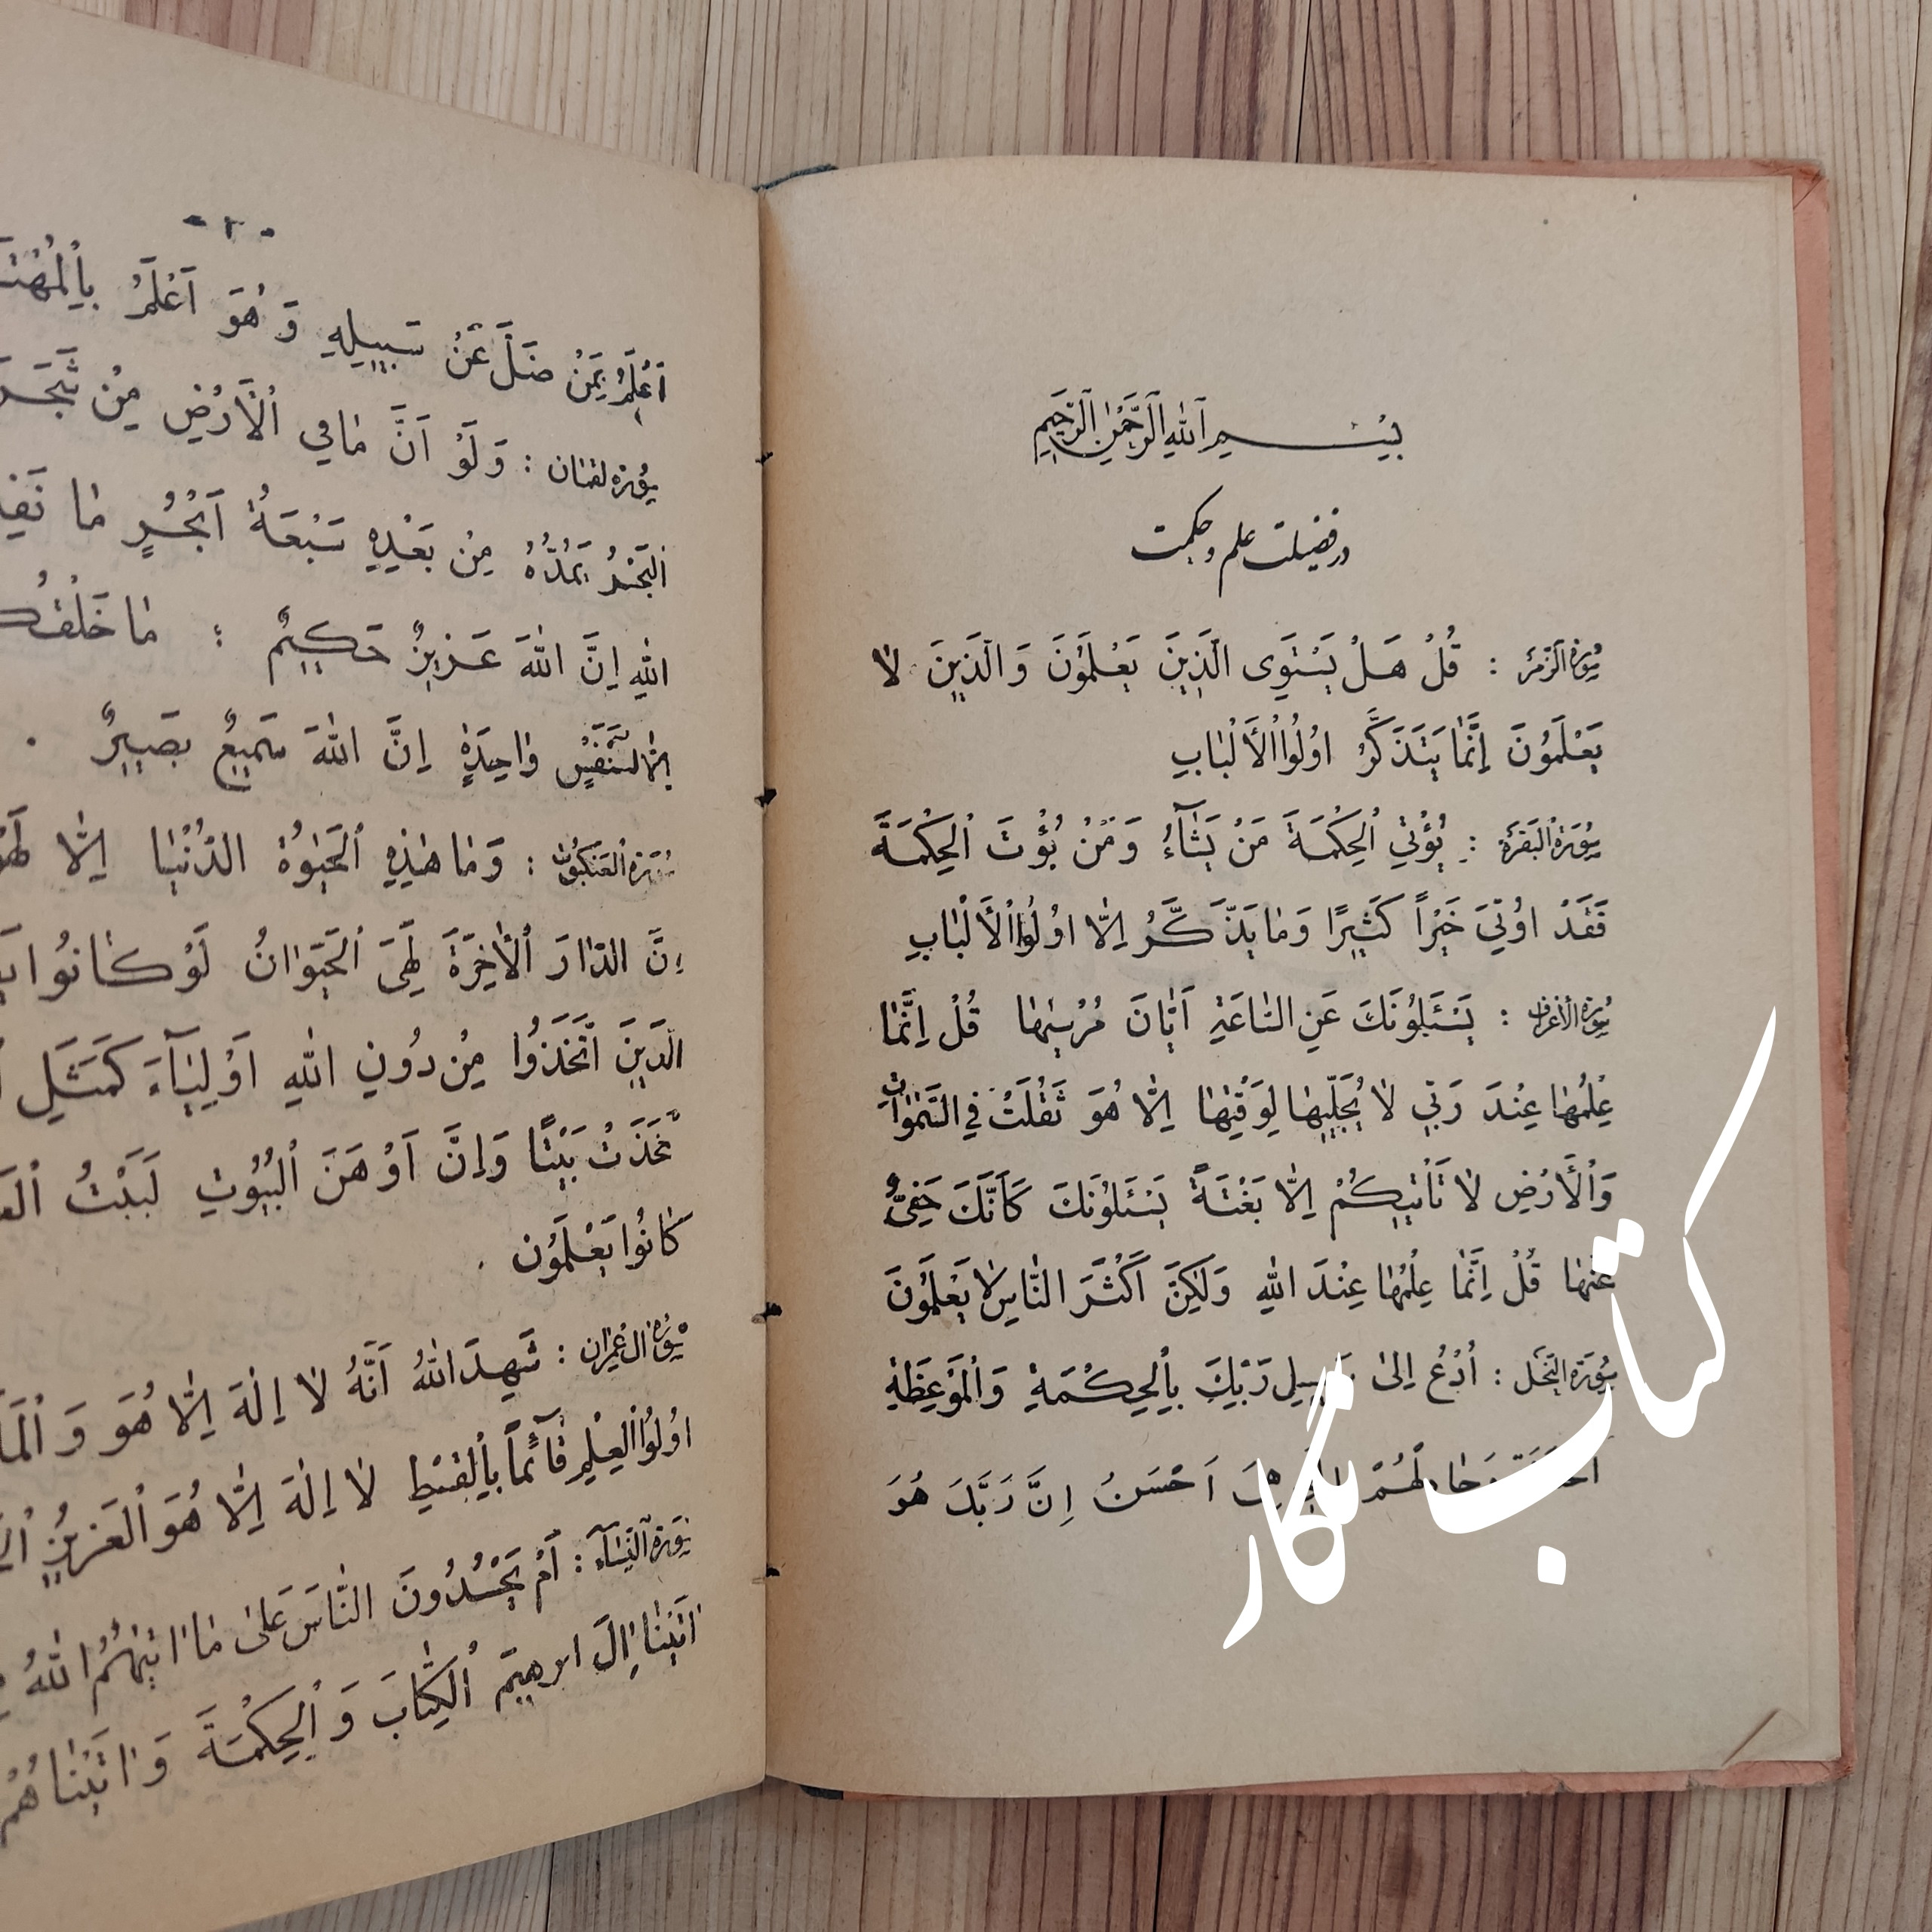 بِسْمِ اللهِ الرَّحْمٰنِ الرَّحِيمِ
در فضیلت علم و حکمت
سُورَةُ الزُّمَر : قُلْ هَلْ يَسْتَوِى الَّذِينَ يَعْلَمُونَ وَ الَّذِينَ لاٰ
يَعْلَمُونَ إِنَّمٰا يَتَذَكَّرُ اُولُوا اْلأَلْبٰابِ
سُورَةُ الْبَقَرَة : يُؤْتِي الْحِكْمَةَ مَنْ يَشٰٓاءُ وَ مَنْ يُؤْتَ الْحِكْمَةَ
فَقَدْ اُوتِيَ خَيْراً كَثِيرًا وَ مٰا يَذَّكَّرُ اِلاّٰ اُولُوا اْلأَلْبٰابِ
سُورَةُ الأَعْرٰاف : يَسْئَلُونَكَ عَنِ السّٰاعَةِ اَيّٰانَ مُرْسٰيهٰا قُلْ اِنَّمٰا
عِلْمُهٰا عِنْدَ رَبِّي لاٰ يُجَلِّيهٰا لِوَقْتِهٰا اِلاّٰ هُوَ ثَقُلَتْ فِي السَّمٰوٰاتِ
وَ اْلأَرْضِ لاٰ تَأْتِيكُمْ اِلاّٰ بَغْتَةً يَسْئَلُونَكَ كَأَنَّكَ حَفِيٌّ
عَنْهٰا قُلْ اِنَّمٰا عِلْمُهٰا عِنْدَ اللهِ وَ لٰكِنَّ اَكْثَرَ النّٰاسِ لاٰ يَعْلَمُونَ
سُورَةُ النَّحْل : اُدْعُ اِلىٰ سَبِيلِ رَبِّكَ بِالْحِكْمَةِ وَ الْمَوْعِظَةِ
هِيَ اَحْسَنُ اِنَّ رَبَّكَ هُوَ
- ٢ -
اَعْلَمُ بِمَنْ ضَلَّ عَنْ سَبِيلِهِ وَ هُوَ اَعْلَمُ
سُورَةُ لُقْمٰان : وَ لَوْ اَنَّ مٰا فِي الْأَرْضِ مِنْ
الْبَحْرُ يَمُدُّهُ مِنْ بَعْدِهِ سَبْعَةُ اَبْحُرٍ مٰا
اللهِ اِنَّ اللهَ عَزِيزٌ حَكِيمٌ : مٰا
اِلاّٰ كَنَفْسٍ وٰاحِدَةٍ اِنَّ اللهَ سَمِيعٌ بَصِيرٌ .
سُورَةُ الْعَنْكَبُوت : وَ مٰا هٰذِهِ الْحَيٰوةُ الدُّنْيٰا اِلاّٰ
اِنَّ الدّٰارَ الْأٰخِرَةَ لَهِيَ الْحَيَوٰانُ لَوْ كٰانُوا
الَّذِينَ اتَّخَذُوا مِنْ دُونِ اللهِ اَوْلِيٰٓاءَ كَمَثَلِ
تَّخَذَتْ بَيْتًا وَ اِنَّ اَوْهَنَ الْبُيُوتِ لَبَيْتُ
كٰانُوا يَعْلَمُون .
سُورَةُ اٰلِ عِمْرٰان : شَهِدَ اللهُ اَنَّهُ لاٰ اِلٰهَ اِلاّٰ هُوَ وَ
اُولُوا الْعِلْمِ قٰآئِمًا بِالْقِسْطِ لاٰ اِلٰهَ اِلاّٰ هُوَ الْعَزِيزُ
سُورَةُ النِّسٰآء : اَمْ يَحْسُدُونَ النّٰاسَ عَلىٰ مٰا اٰتٰيهُمُ اللهُ
اٰتَيْنٰا اٰلَ ابرهيمَ الْكِتٰابَ وَ الْحِكْمَةَ وَ اٰتَيْنٰاهُمْ
کتاب نگار